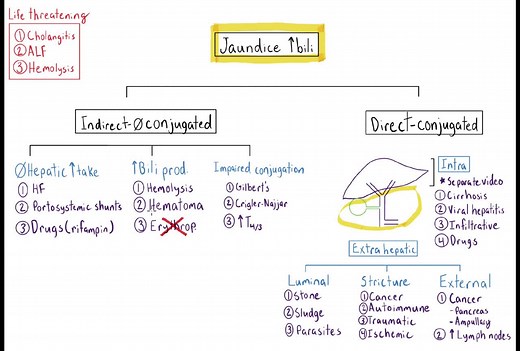 Life threatening
① Cholangitis
② ALF
③ Hemolysis
Jaundice ↑bili
Indirect-Ø conjugated
Direct-conjugated
ØHepatic ↑take
① HF
② Portosystemic shunts
③ Drugs (rifampin)
↑Bili prod.
① Hemolysis
② Hematoma
③ Erythrop.
Impaired conjugation
① Gilbert's
② Crigler-Najjar
③ ↑T4/3
Intra
* Separate video
① Cirrhosis
② Viral hepatitis
③ Infiltrative
④ Drugs
Extrahepatic
Luminal
① Stone
② Sludge
③ Parasites
Stricture
① Cancer
② Autoimmune
③ Traumatic
④ Ischemic
External
① Cancer
-Pancreas
-Ampullary
② ↑ Lymph nodes